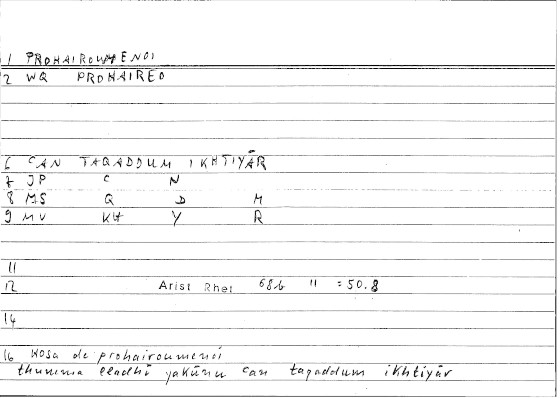 1 PROHAIROUMENOI
2 WQ PROHAIREO
6 CAN TAQADDUM IKHTIYĀR
7 JP C N
8 MS Q D M
9 MV KH Y R
11
12 Arist Rhet 68b 11 = 50.8
14
16 hosa de prohairoumenoi
thumma elladhī yakūnu can taqaddum ikhtiyār